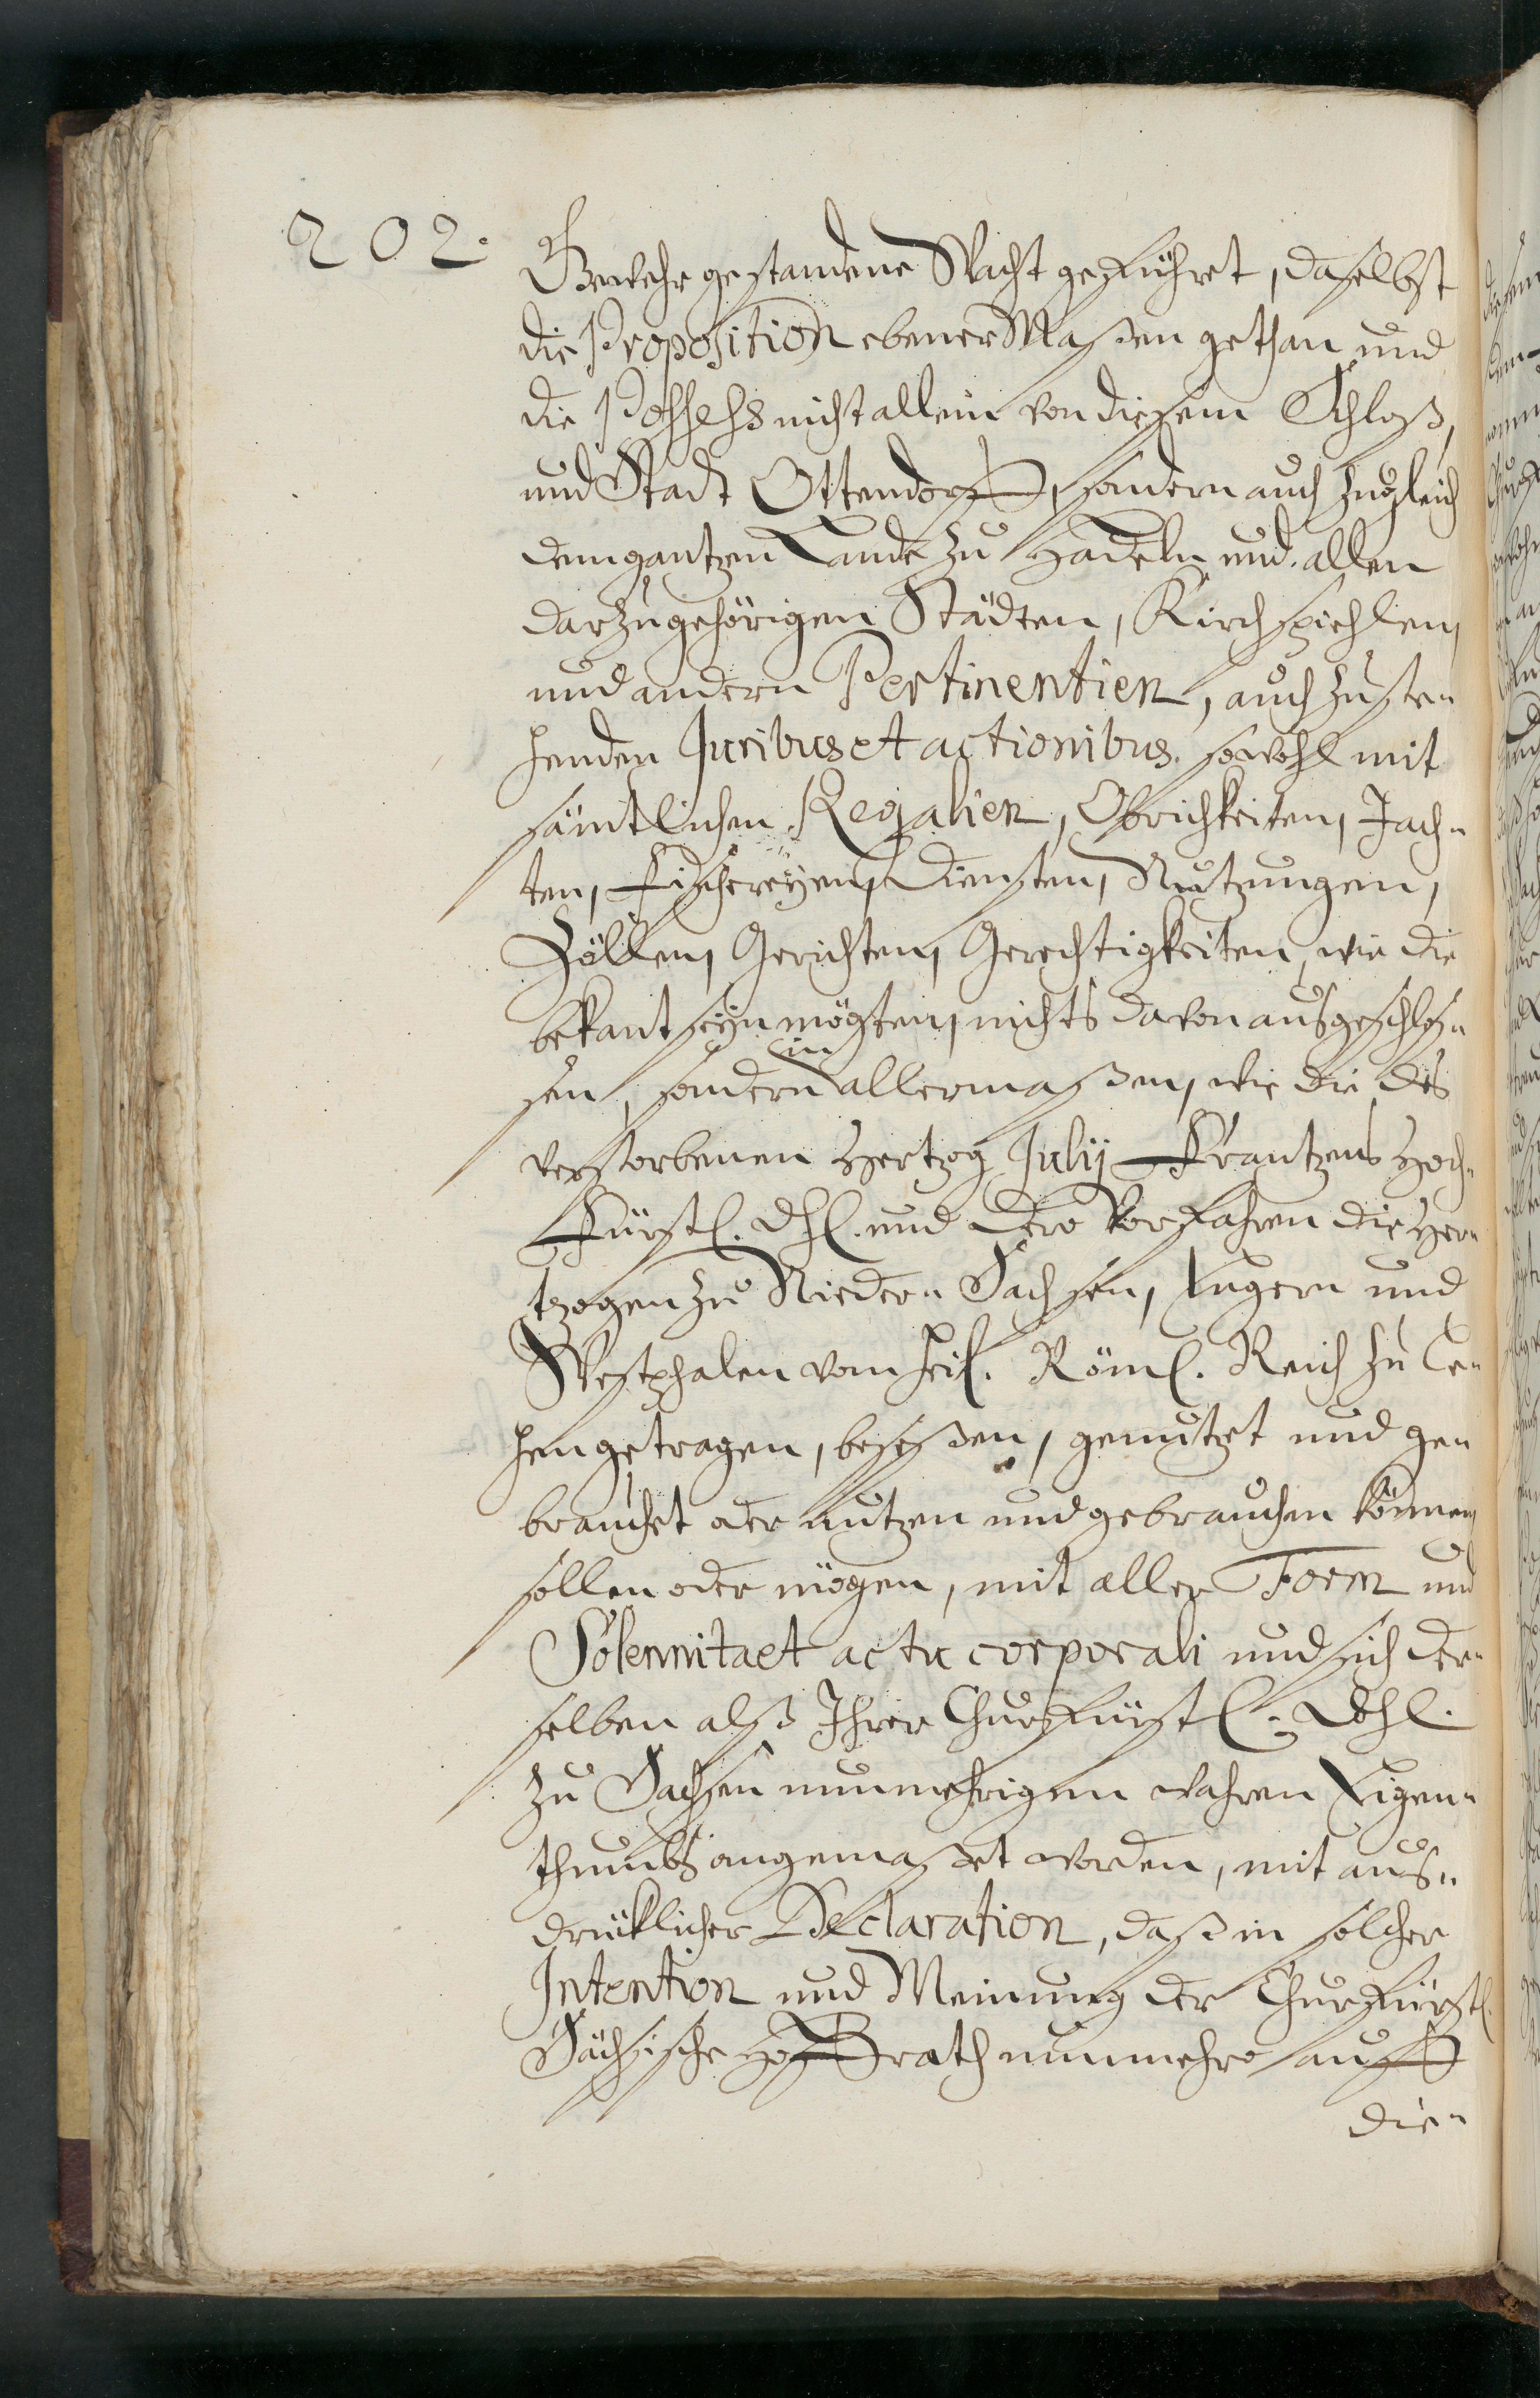 202.
Gewehr gestandene Wacht geführet, daselbst
die Proposition ebener Maßen gethan und
die Possess nicht allein von diesem Schloß,
und Stadt Ottendorff, sondern auch zugleich
dem gantzen Lande zu Hadeln und allen
darzugehörigen Städten, Kirchspiehlen,
und andern Pertinentien, auch zuste-
henden Juribus et actionibus. sowohl mit
sämtlichen Regalien, Obrichkeiten, Jach-
ten, Fischereÿen, Diensten, Nutzungen,
Zöllen, Gerichten, Gerechtigkeiten, wie die
bekant seÿn mögten, nichts davon ausgeschlos-
sen, sondern in allermaßen, wie die des
verstorbenen Hertzog Julij Frantzens Hoch-
Fürstl. Dhl. und dero Vorfahren die Her-
tzogen zu Nieder- Sachsen, Engern und
Westphalen vom heil. Röml. Reich zu Le-
hen getragen, beseßen, genutzet und ge-
brauchet oder nutzen und gebrauchen können
sollen oder mögen, mit aller Form und
Solennitaet actu corporali und sich der-
selben alß Ihrer Churfürstl. Dhl.
zu Sachsen nunmehrigen wahren Eigen-
thumbs angemaßet worden, mit aus-
drücklicher Declaration, daß in solcher
Intention und Meinung der Churfürstl.
Sächsische Hoffrath nunmehro auff
die-